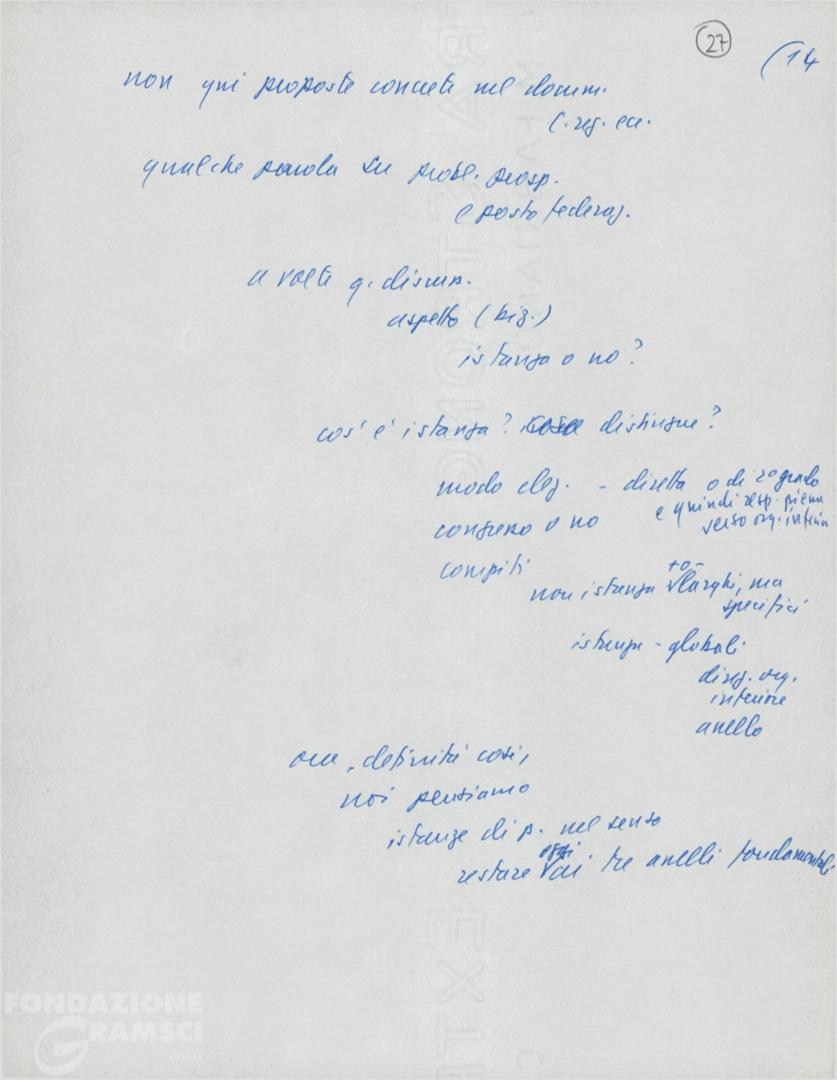 27
(14
non qui proposte concrete nel docum.
C. reg. ecc.
qualche parola su probl. prosp.
e posto federaz.
a volte q. discuss.
aspetto (big.)
istanza o no?
cos'è istanza? cosa distingue?
modo elez. - diretta o di 2º grado
e quindi resp. piena
verso org. inferior
congresso o no
compiti
+ o -
non istanza larghi, ma
specifici
istanza - globali
direz. org.
inferiore
anello
ora, definita così,
noi pensiamo
istanze di p. nel senso
oggi
restare ai tre anelli fondamentali
FONDAZIONE
GRAMSCI
onlus